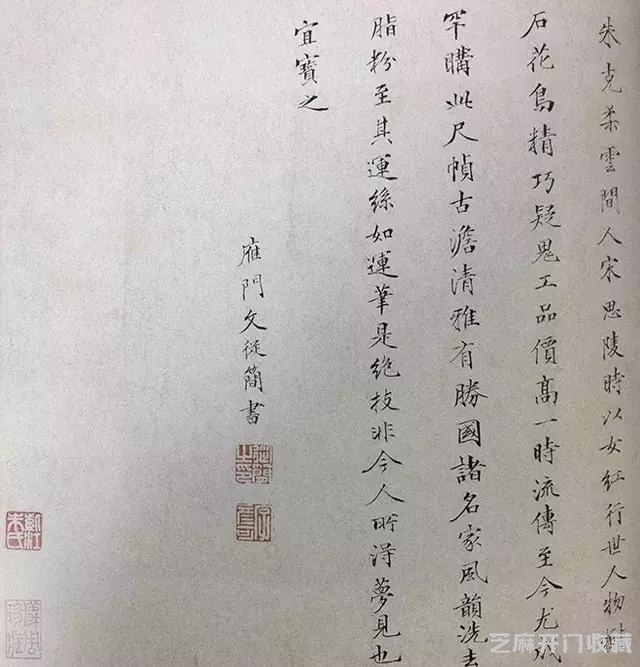 朱克柔雲間人宋思陵時以女紅行世人物樹
石花鳥精巧疑鬼工品價髙一時流傳至今尤成
罕購此尺幀古澹清雅有勝國諸名家風韻洗去
脂粉至其運絲如運筆是絶技非今人所得夢見也
宜寶之
雁門文從簡書
芝麻开门收藏